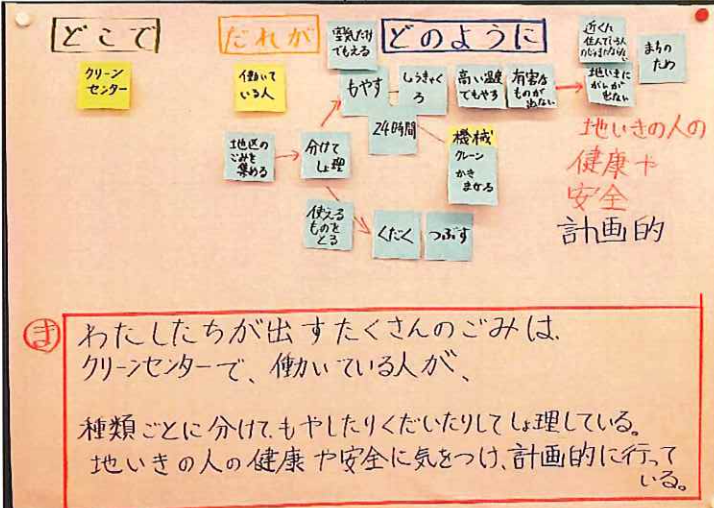 どこで
だれが
どのように
クリーン
センター
働いて
いる人
空気だけ
でもえる
もやす
しょうきゃく
ろ
高い温度
でもやす
有害な
ものが
出ない
近くに
住んでいる人
まちの
ため
地いきに
がいが
出ない
24時間
機械
クレーン
かき
まぜる
地区の
ごみを
集める
分けて
しょ理
使える
ものを
とる
くだく
つぶす
地いきの人の
健康や
安全
計画的
ま
わたしたちが出すたくさんのごみは、
クリーンセンターで、働いている人が、
種類ごとに分けて、もやしたりくだいたりしてしょ理している。
地いきの人の健康や安全に気をつけ、計画的に行って
いる。